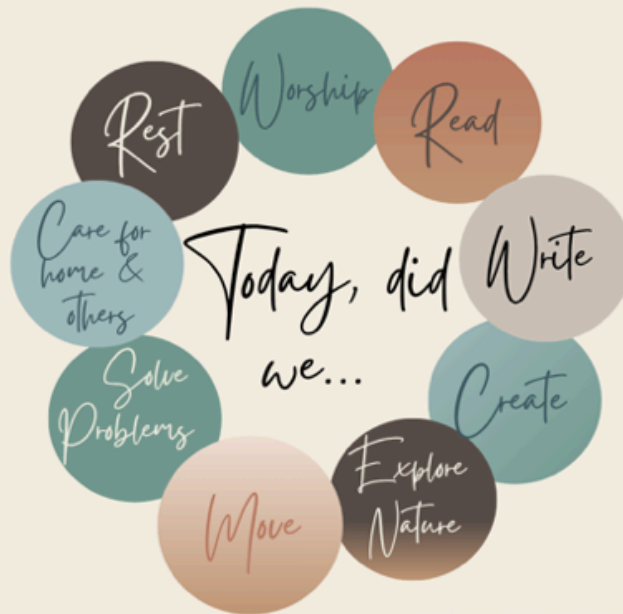 Today, did
we...
Worship
Read
Write
Create
Explore
Nature
Move
Solve
Problems
Care for
home &
others
Rest